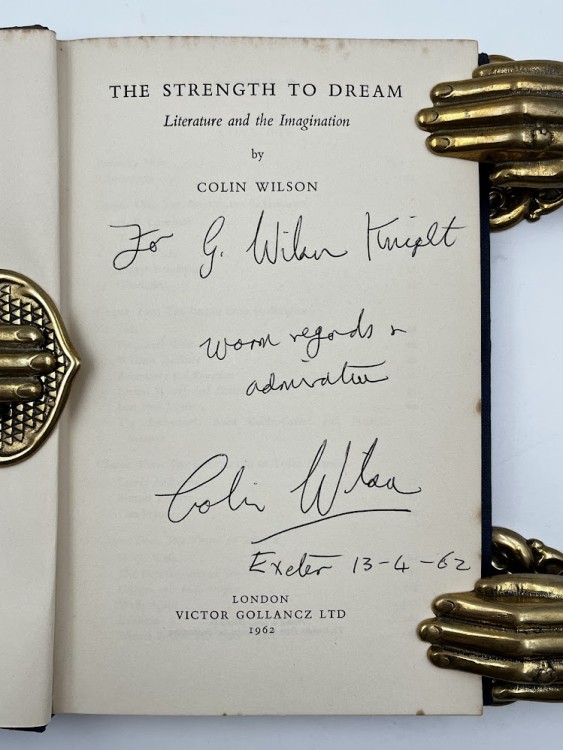 THE STRENGTH TO DREAM
Literature and the Imagination
by
COLIN WILSON
For G. Wilson Knight
warm regards &
admiration
Colin Wilson
Exeter 13-4-62
LONDON
VICTOR GOLLANCZ LTD
1962